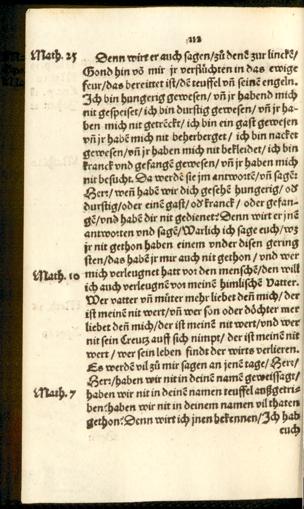 112
Math. 25 Denn wirt er auch sagen/zů denẽ zur linckẽ/
Gond hin võ mir jr verflůchten in das ewige
feur/das bereittet ist/dẽ teuffel vñ seinẽ engeln.
Ich bin hungerig gewesen/vñ jr habend mich
nit gespeiset/ich bin durstig gewesen/vñ jr ha-
ben mich nit getrẽckt/ich bin ein gast gewesen
vñ jr habẽ mich nit beherberget/ich bin nacket
gewesen/vñ jr haben mich nit bekleidet/ich bin
kranck vnd gefangẽ gewesen/vñ jr haben mich
nit besucht. Da werdẽ sie jm antwortẽ/vñ sagẽ:
Herr/weñ habẽ wir dich gesehẽ hungerig/od
durstig/oder einẽ gast/od kranck/oder gefan-
gẽ/vnd habẽ dir nit gedienet: Denn wirt er jnẽ
antworten vnd sagẽ/Warlich ich sage euch/wz
jr nit gethon haben einem vnder disen gering
sten/das habẽ jr mir auch nit gethon/vnd wer
Math. 10 mich verleugnet hatt vor den menschẽ/den will
ich auch verleugnẽ vor meinẽ himlischẽ Vatter.
Wer vatter vñ můter mehr liebet deñ mich/der
ist meinẽ nit wert/vñ wer son oder dòchter mer
liebet deñ mich/der ist meinẽ nit wert/vnd wer
nit sein Creutz auff sich nimpt/der ist meinẽ nit
wert/wer sein leben findt der wirts verlieren.
Es werdẽ vil zů mir sagen an jenẽ tage/Herr/
Herr/haben wir nit in deinẽ namẽ geweissagt/
Math. 7 haben wir nit in deinen namen teuffel außgetri-
ben: haben wir nit in deinem namen vil thaten
gethon: Denn wirt ich jnen bekennen/Ich hab
euch